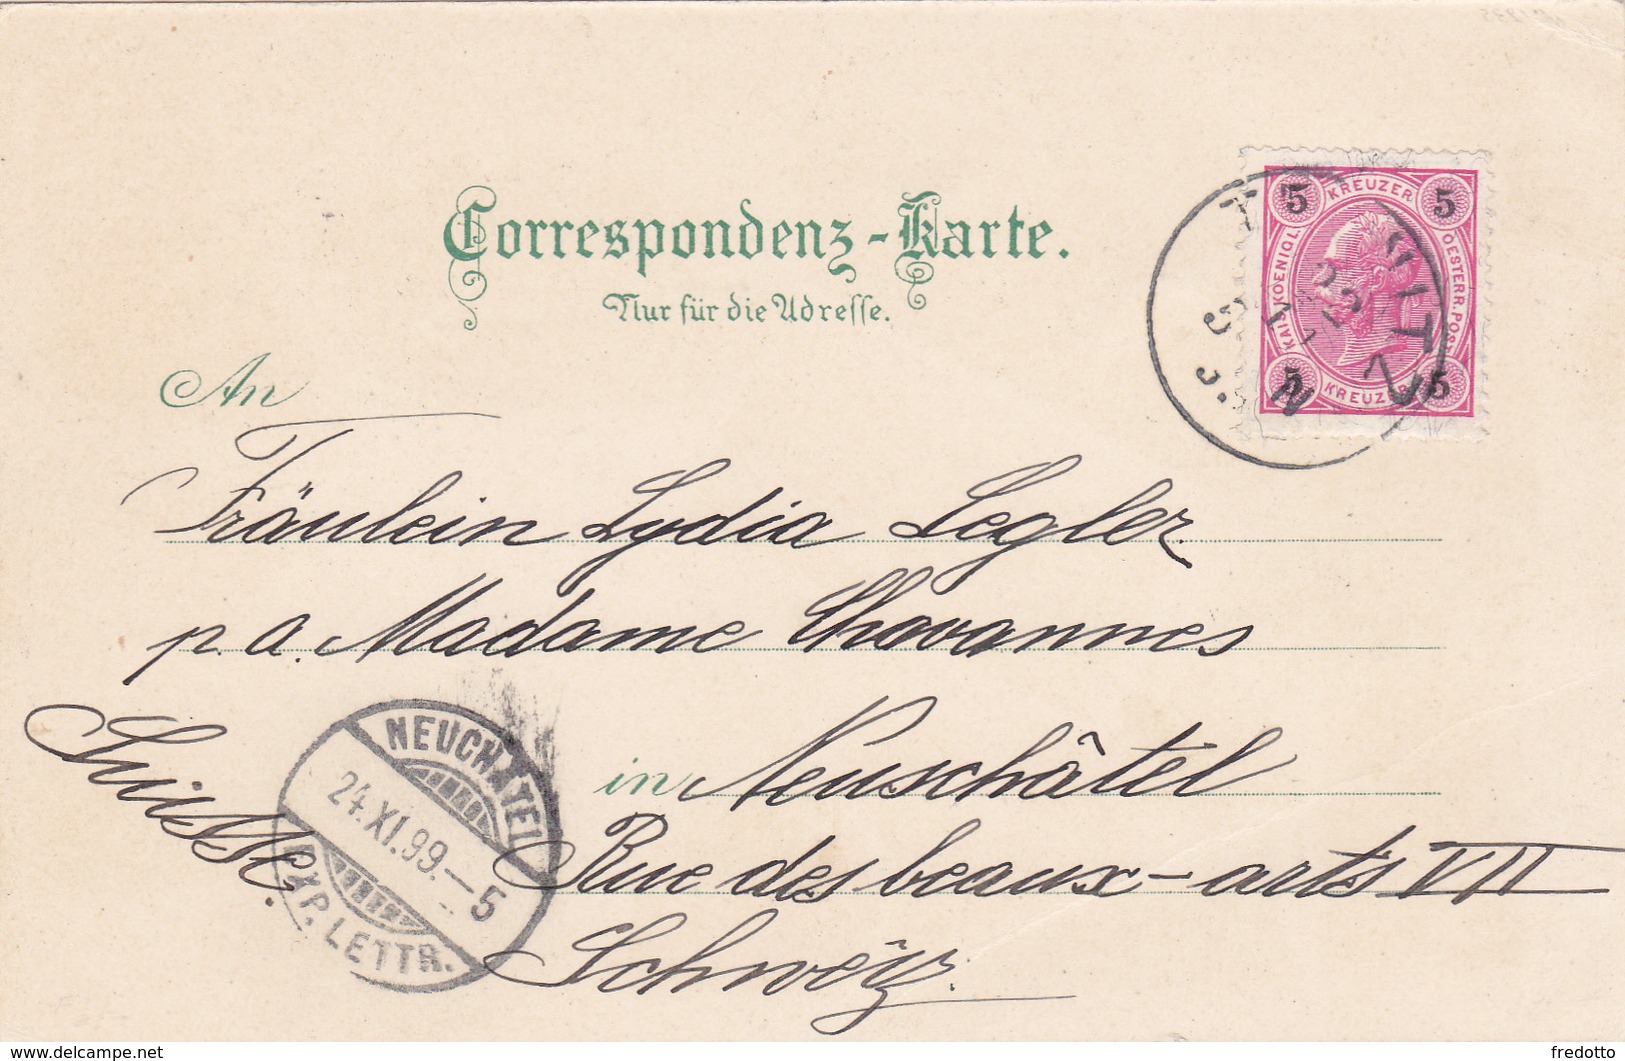 Correspondenz-Karte.
Nur für die Adresse.
5 KREUZER 5
KAIS. KOENIGL. OESTERR. POST
5 KREUZER 5
An
Fräulein Lydia Legler
p. a. Madame Chavannes
in Neuschâtel
Rue des beaux-arts VII
Schweiz.
Suisse.
NEUCHATEL
24.XI.99.–5
EXP. LETTR.
delcampe.net
fredotto